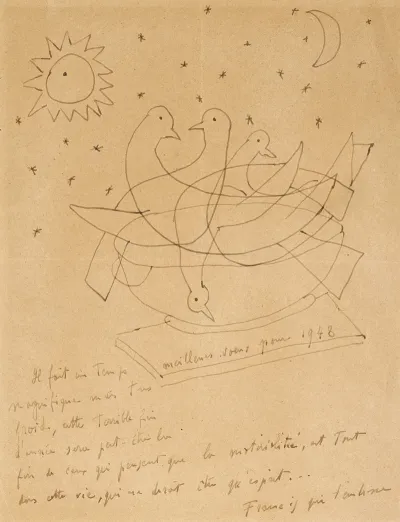 meilleurs voeux pour 1948
Il fait un Temps
magnifique mais Tres
froid, cette Terrible fin
d'année sera peut-être la
fin de ceux qui pensent que la matérialité, est Tout
dans cette vie, qui ne devrait être qu'esprit...
Francis qui